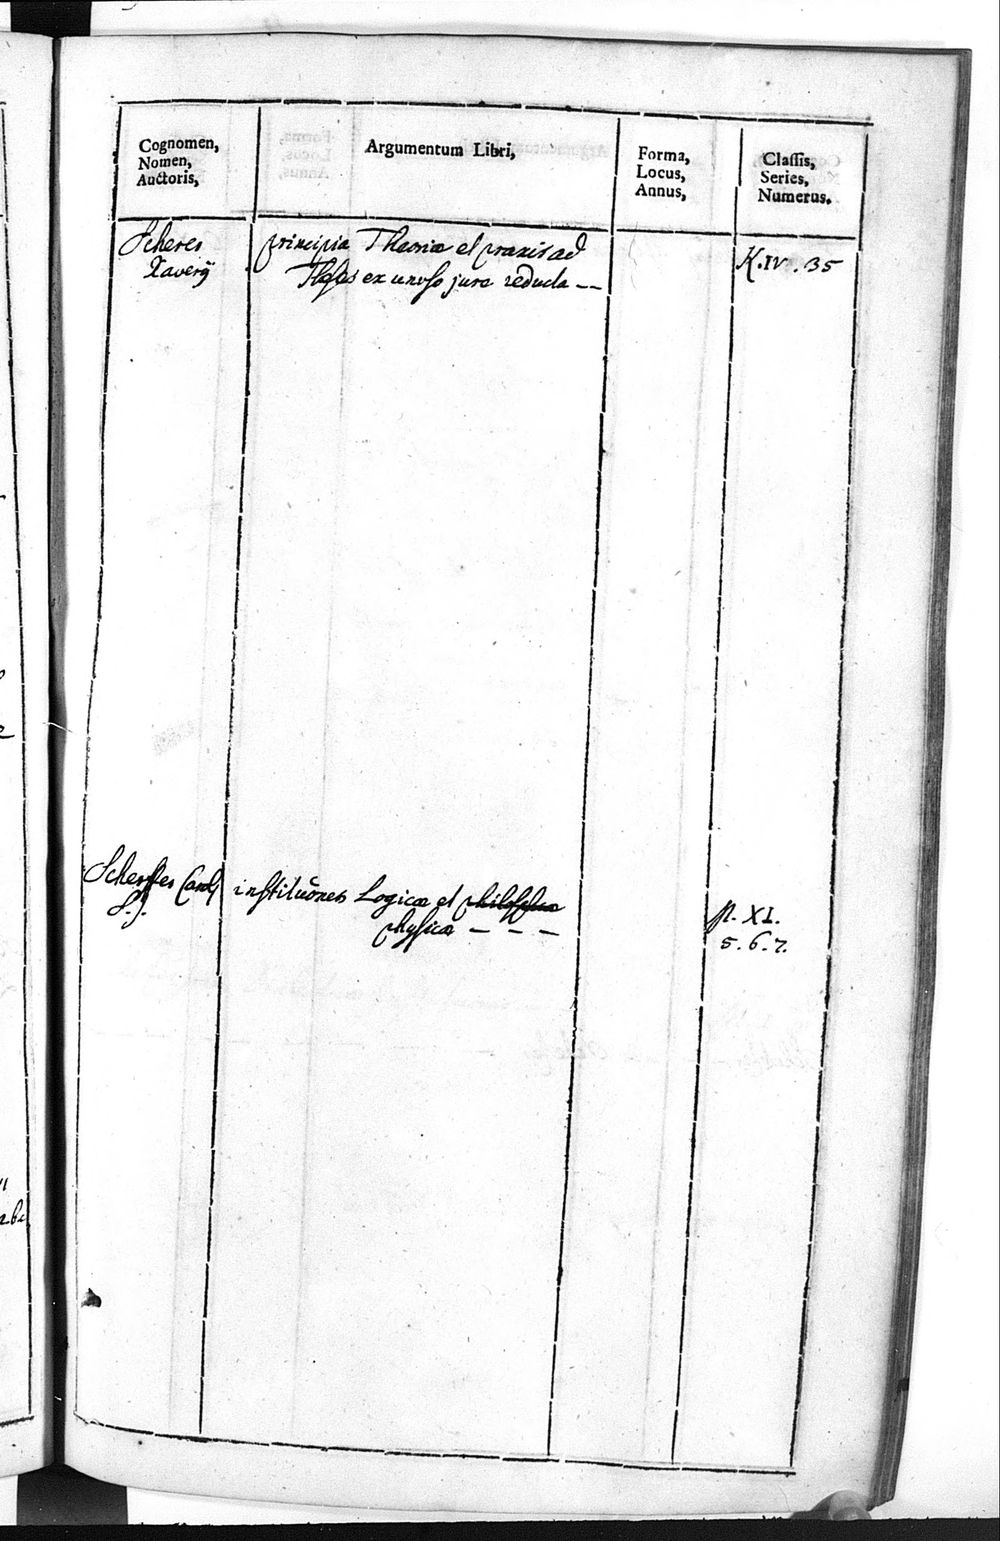 Cognomen,
Nomen,
Auctoris,
Argumentum Libri,
Forma,
Locus,
Annus,
Classis,
Series,
Numerus.
Scherer
Xaverÿ
principia Theoriæ et praxis ad
Theses ex unvso jure reducta --
K. IV. 35
Scherffer Caroly
S. J.
institutiões Logicæ et philosophiæ
physicæ - - -
XI.
5. 6. 7.